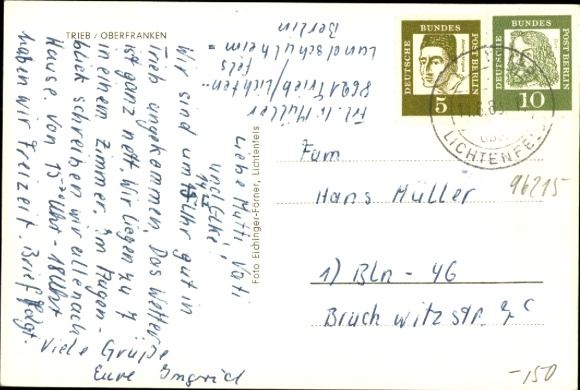 TRIEB / OBERFRANKEN
Frl. I. Müller
8621 Trieb/Lichten-
fels
Landschulheim =
Berlin
Liebe Mutti, Vati
und Elke!
Wir sind um Uhr gut in
Trieb angekommen. Das Wetter
ist ganz nett. Wir liegen zu 7
in einem Zimmer. Im Augen-
blick schreiben wir alle nach
Hause. Von 15.00 Uhr - 18 Uhr
haben wir Freizeit. Brief folgt.
Viele Grüße
Eure Ingrid
Foto Eichinger-Förner, Lichtenfels
DEUTSCHE BUNDES POST BERLIN
5
DEUTSCHE BUNDES POST BERLIN
10
LICHTENFELS
Fam
Hans Müller
96215
1) Bln - 46
Bruchwitzstr. 7c
-150